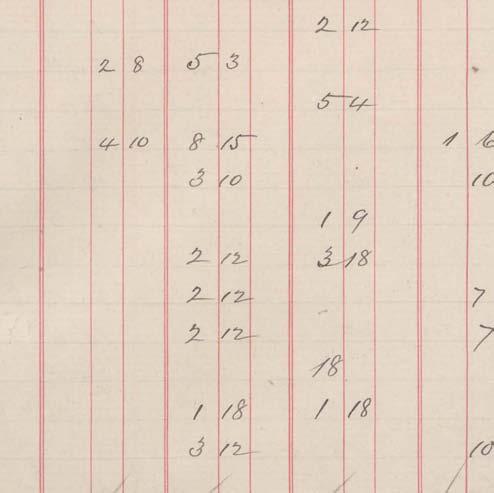 2 12
2 8 5 3
5 4
4 10 8 15 1 16
3 10 10
1 9
2 12 3 18
2 12 7
2 12 7
18
1 18 1 18
3 12 10